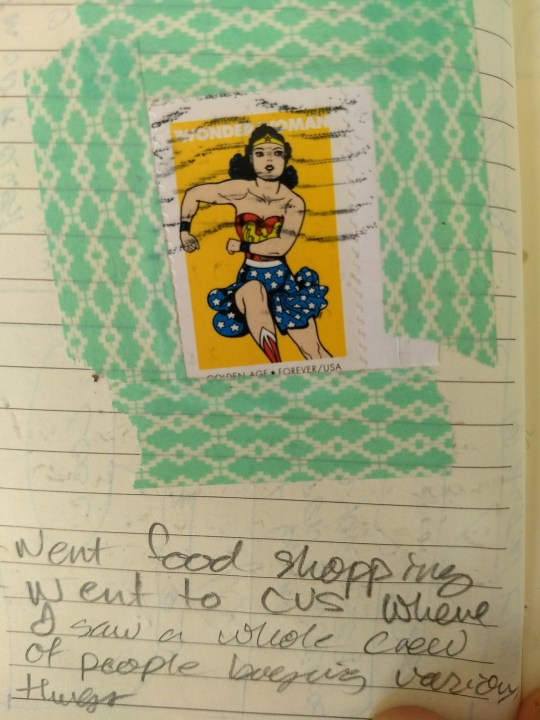 WONDER WOMAN
GOLDEN AGE • FOREVER/USA
Went food shopping
Went to CVS where
I saw a whole crew
of people buying various
things